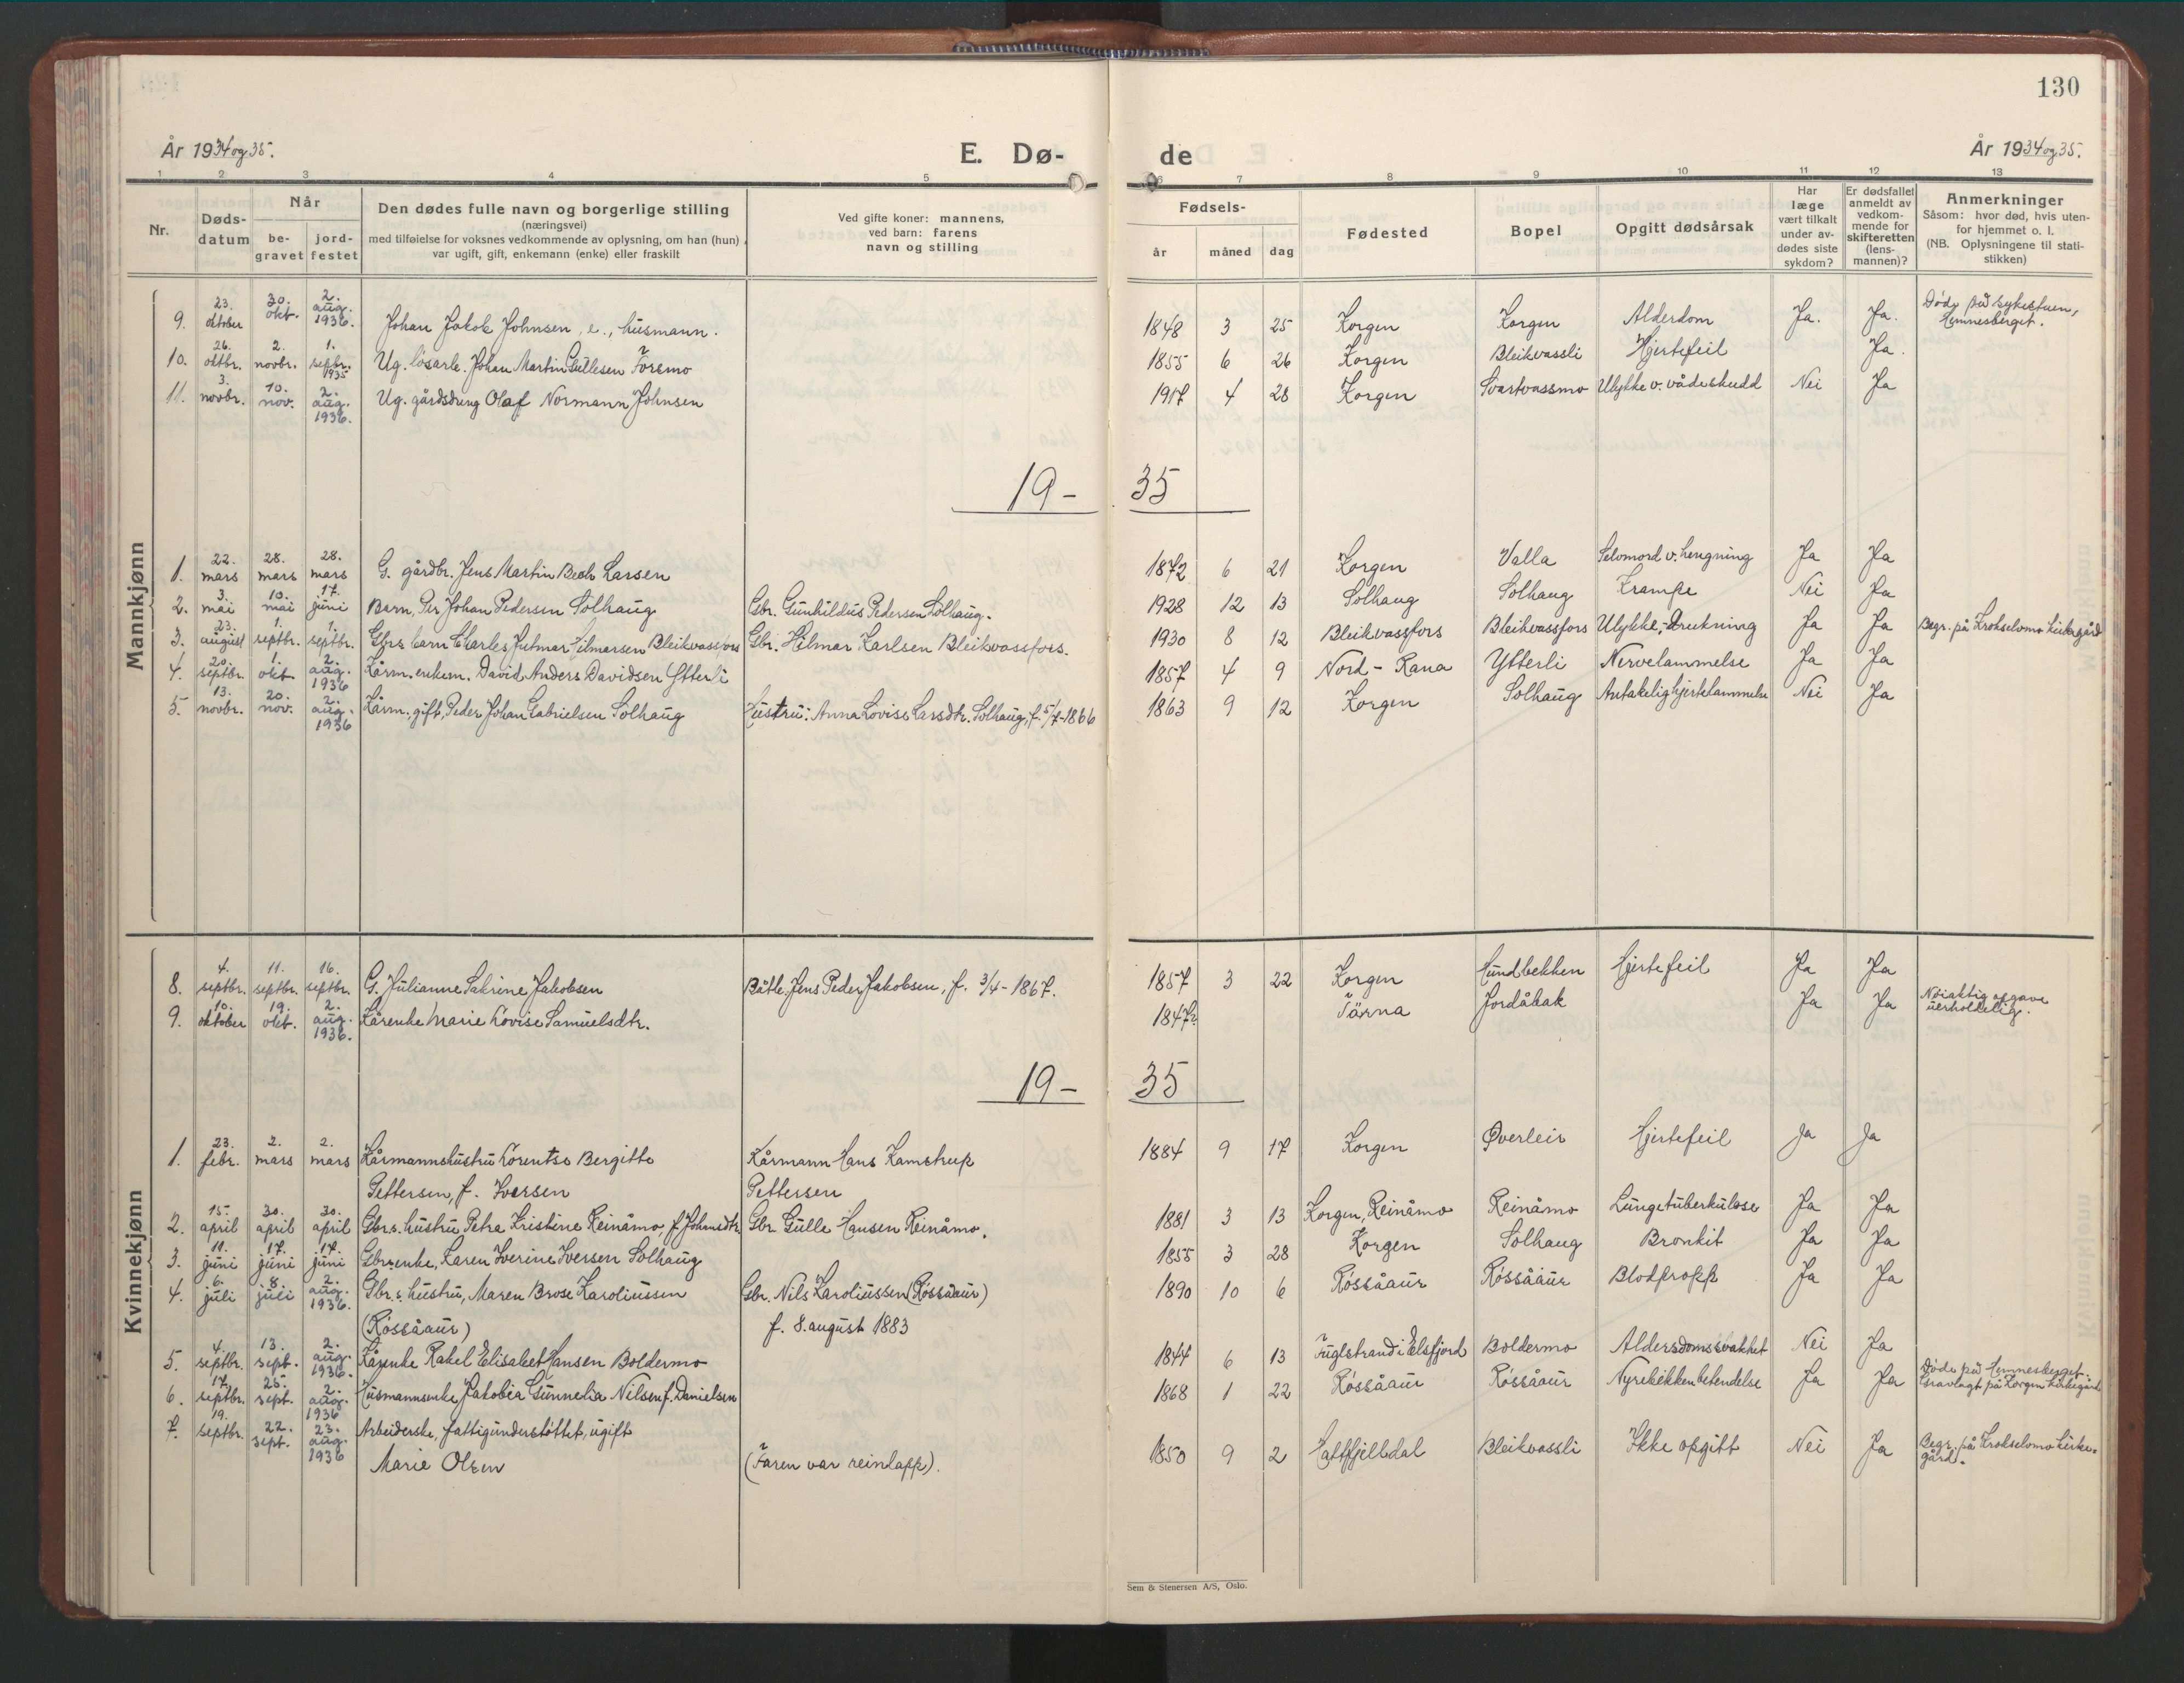 130
År 1934 og 35.
E. Dø-
de
År 1934 og 35.
1 2 3 4 5 6 7 8 9 10 11 12 13
Nr.
Døds-
datum
Når
be-
gravet
jord-
festet
Den dødes fulle navn og borgerlige stilling
(næringsvei)
med tilføielse for voksnes vedkommende av oplysning, om han (hun)
var ugift, gift, enkemann (enke) eller fraskilt
Ved gifte koner: mannens,
ved barn: farens
navn og stilling
Fødsels-
år måned dag
Fødested
Bopel
Opgitt dødsårsak
Har
læge
vært tilkalt
under av-
dødes siste
sykdom?
Er dødsfallet
anmeldt av
vedkom-
mende for
skifteretten
(lens-
mannen)?
Anmerkninger
Såsom: hvor død, hvis uten-
for hjemmet o. l.
(NB. Oplysningene til stati-
stikken)
Mannkjønn
9. 23. oktober 30. okt. 2. aug. 1936. Johan Jakob Johnsen, e., husmann. 1848 3 25 Korgen Korgen Alderdom Ja. Ja. Døde på sykestuen, Hemnesberget.
10. 26. oktbr. 2. novbr. 1. septbr. 1935 Ug. løsarb. Johan Martin Gullesen Foremo 1855 6 26 Korgen Bleikvassli Hjertefeil Ja.
11. 3. novbr. 10. nov. 2. aug. 1936. Ug. gårdsdreng Olaf Normann Johnsen 1917 4 28 Korgen Svartvassmo Ulykke v. vådeskudd Nei Ja
19- 35
1. 22. mars 28. mars 28. mars G. gårdbr. Jens Martin Bech Larsen 1872 6 21 Korgen Valla Selvmord v. hengning Ja Ja
2. 3. mai 10. mai 17. juni Barn, Per Johan Pedersen Solhaug Gbr. Gunhildus Pedersen Solhaug. 1928 12 13 Solhaug Solhaug Krampe Nei Ja
3. 23. august 1. septbr. 1. septbr. Gbrs barn Charles Jutmar Hilmarsen Bleikvassfors Gbr. Hilmar Karlsen Bleikvassfors. 1930 8 12 Bleikvassfors Bleikvassfors Ulykke, Drukning Ja Ja Begr. på Krokselvmo kirkegård
4. 20. septbr. 1. okt 2. aug. 1936 Kårm. enkem. David Anders Davidsen Ytterli 1857 4 9 Nord-Rana Ytterli Nervelammelse Ja Ja
5. 13. novbr. 20. nov. 2. aug. 1936 Kårm. gift, Peder Johan Gabrielsen Solhaug Hustru: Anna Lovise Larsdtr. Solhaug, f. 5/7-1866 1863 9 12 Korgen Solhaug Antakelig hjertelammelse Nei Ja
Kvinnekjønn
8. 4. septbr. 11. septbr. 16. septbr. G. Julianne Sakrine Jakobsen Båtb. Jens Peder Jakobsen, f. 3/4-1867. 1857 3 22 Korgen Hundbekken Hjertefeil Ja Ja
9. 10. oktober 19. okt. 2. aug. 1936. Kårenke Marie Lovise Samuelsdtr. 1847? Tärna Jordåbak Ja Ja Nøiaktig opgave uerholdelig.
19- 35
1. 23. febr. 2. mars 2. mars Kårmannshustru Lorentse Bergitte Kårmann Hans Kamstrup 1884 9 17 Korgen Øverleir Hjertefeil Ja Ja
Pettersen, f. Iversen Pettersen
2. 15. april 30. april 30. april Gbrs. hustru Petra Kristine Reinåmo f. Johnsdtr. Gbr Gulle Hansen Reinåmo. 1881 3 13 Korgen, Reinåmo Reinåmo Lungetuberkulose Ja Ja
3. 11. juni 17. juni 17. juni Gbrs enke, Karen Iverine Iversen Solhaug 1855 3 28 Korgen Solhaug Bronkit Ja Ja
4. 6. juli 8. juli 2. aug. 1936. Gbr.s. hustru, Maren Brose Karoliussen Gbr. Nils Karoliussen (Røssåaur) 1890 10 6 Røssåaur Røssåaur Blodpropp Ja Ja
(Røssåaur) f. 8. august 1883
5. 4. septbr. 13. sept. 2. aug. 1936. Kårenke Rakel Elisabet Hansen Boldermo 1844 6 13 Fuglstrand i Elsfjord Boldermo Aldersdomssvakhet Nei Ja
6. 17. septbr. 25. sept. 2. aug. 1936 Husmannsenke Jakobia Gunnelia Nilsen f. Danielsen 1868 1 22 Røssåaur Røssåaur Nyrebekkenbetendelse Ja Ja Døde på Hemnesberget. Gravlagt på Korgen kirkegård
7. 19. septbr. 22. sept. 23. aug. 1936 Arbeiderske, fattigunderstøttet, ugift
Marie Olsen (Faren var reinlapp). 1850 9 2 Hattfjelldal Bleikvassli Ikke opgitt Nei Ja Begr. på Krokselvmo kirke-
gård.
Sem & Stenersen A/S, Oslo.